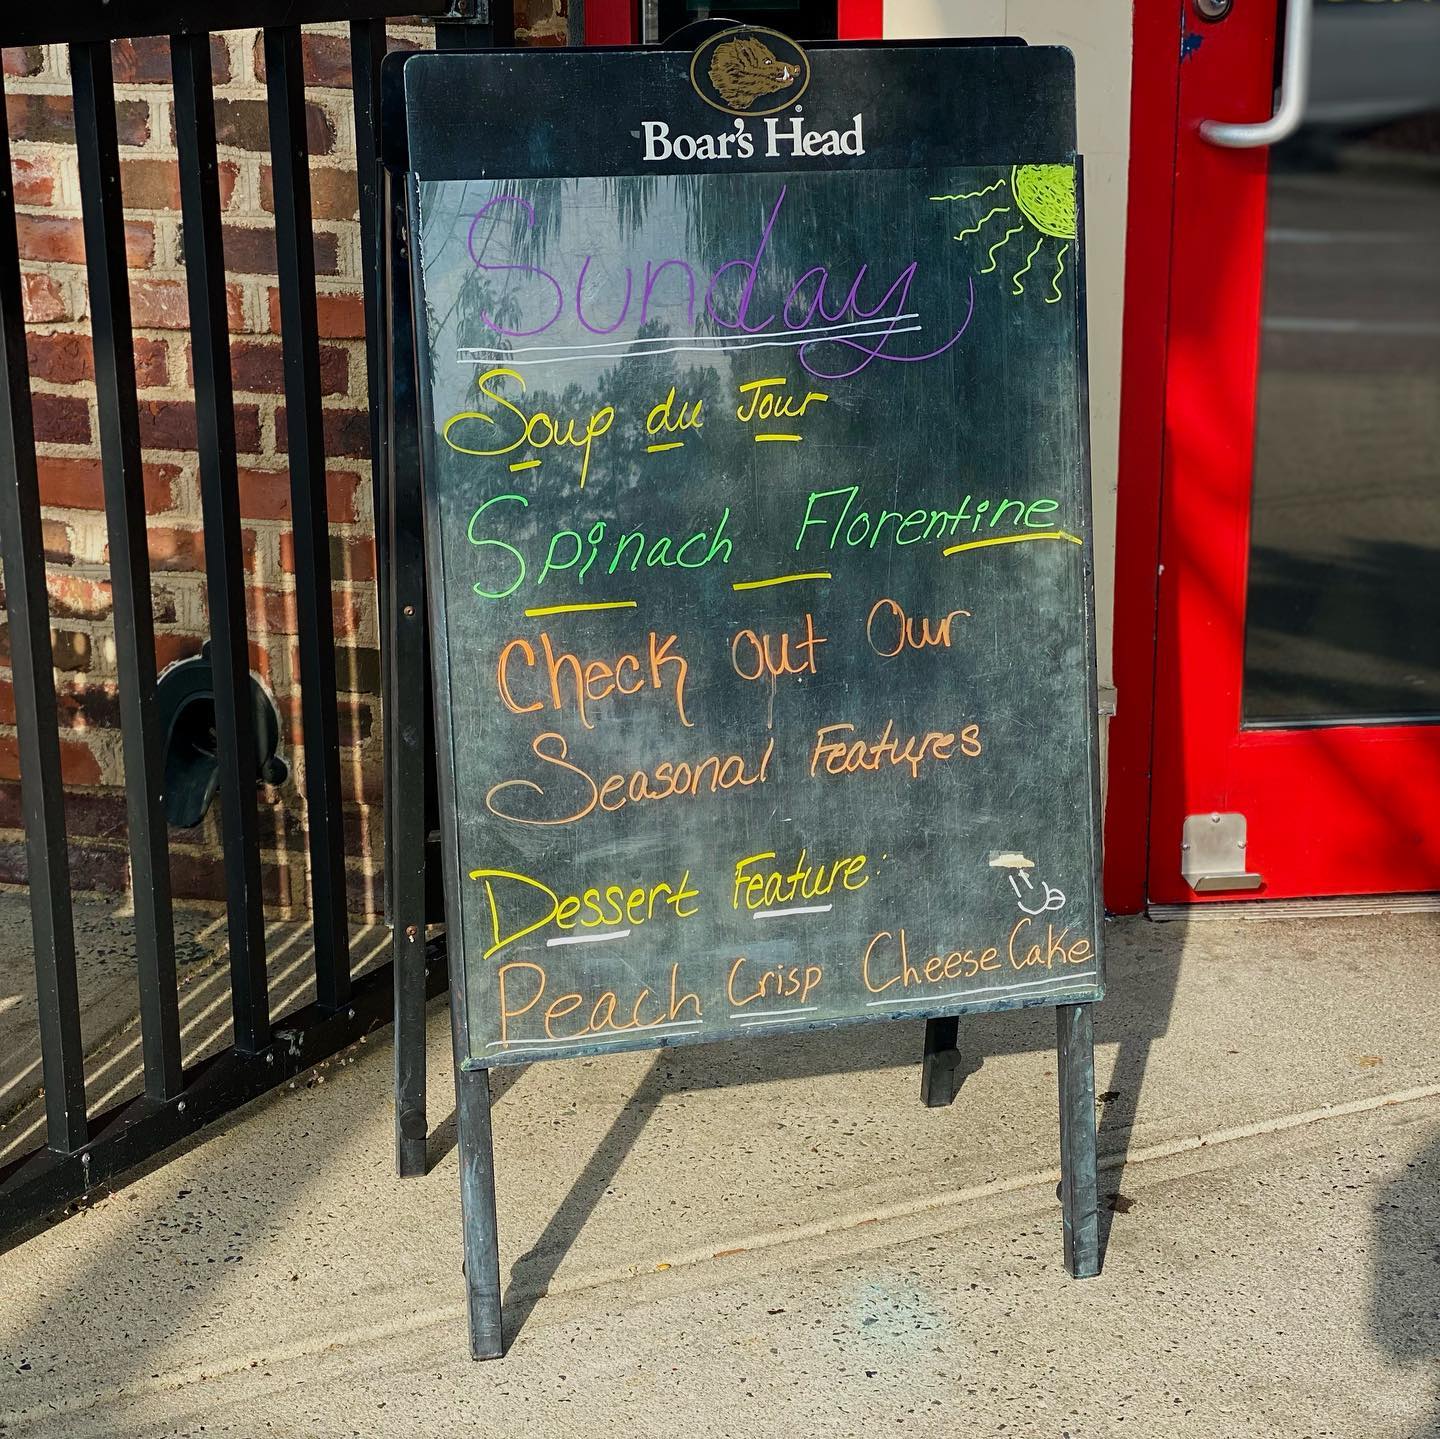 Boar's Head
Sunday
Soup du Jour
Spinach Florentine
Check out Our
Seasonal Features
Dessert Feature:
Peach Crisp CheeseCake